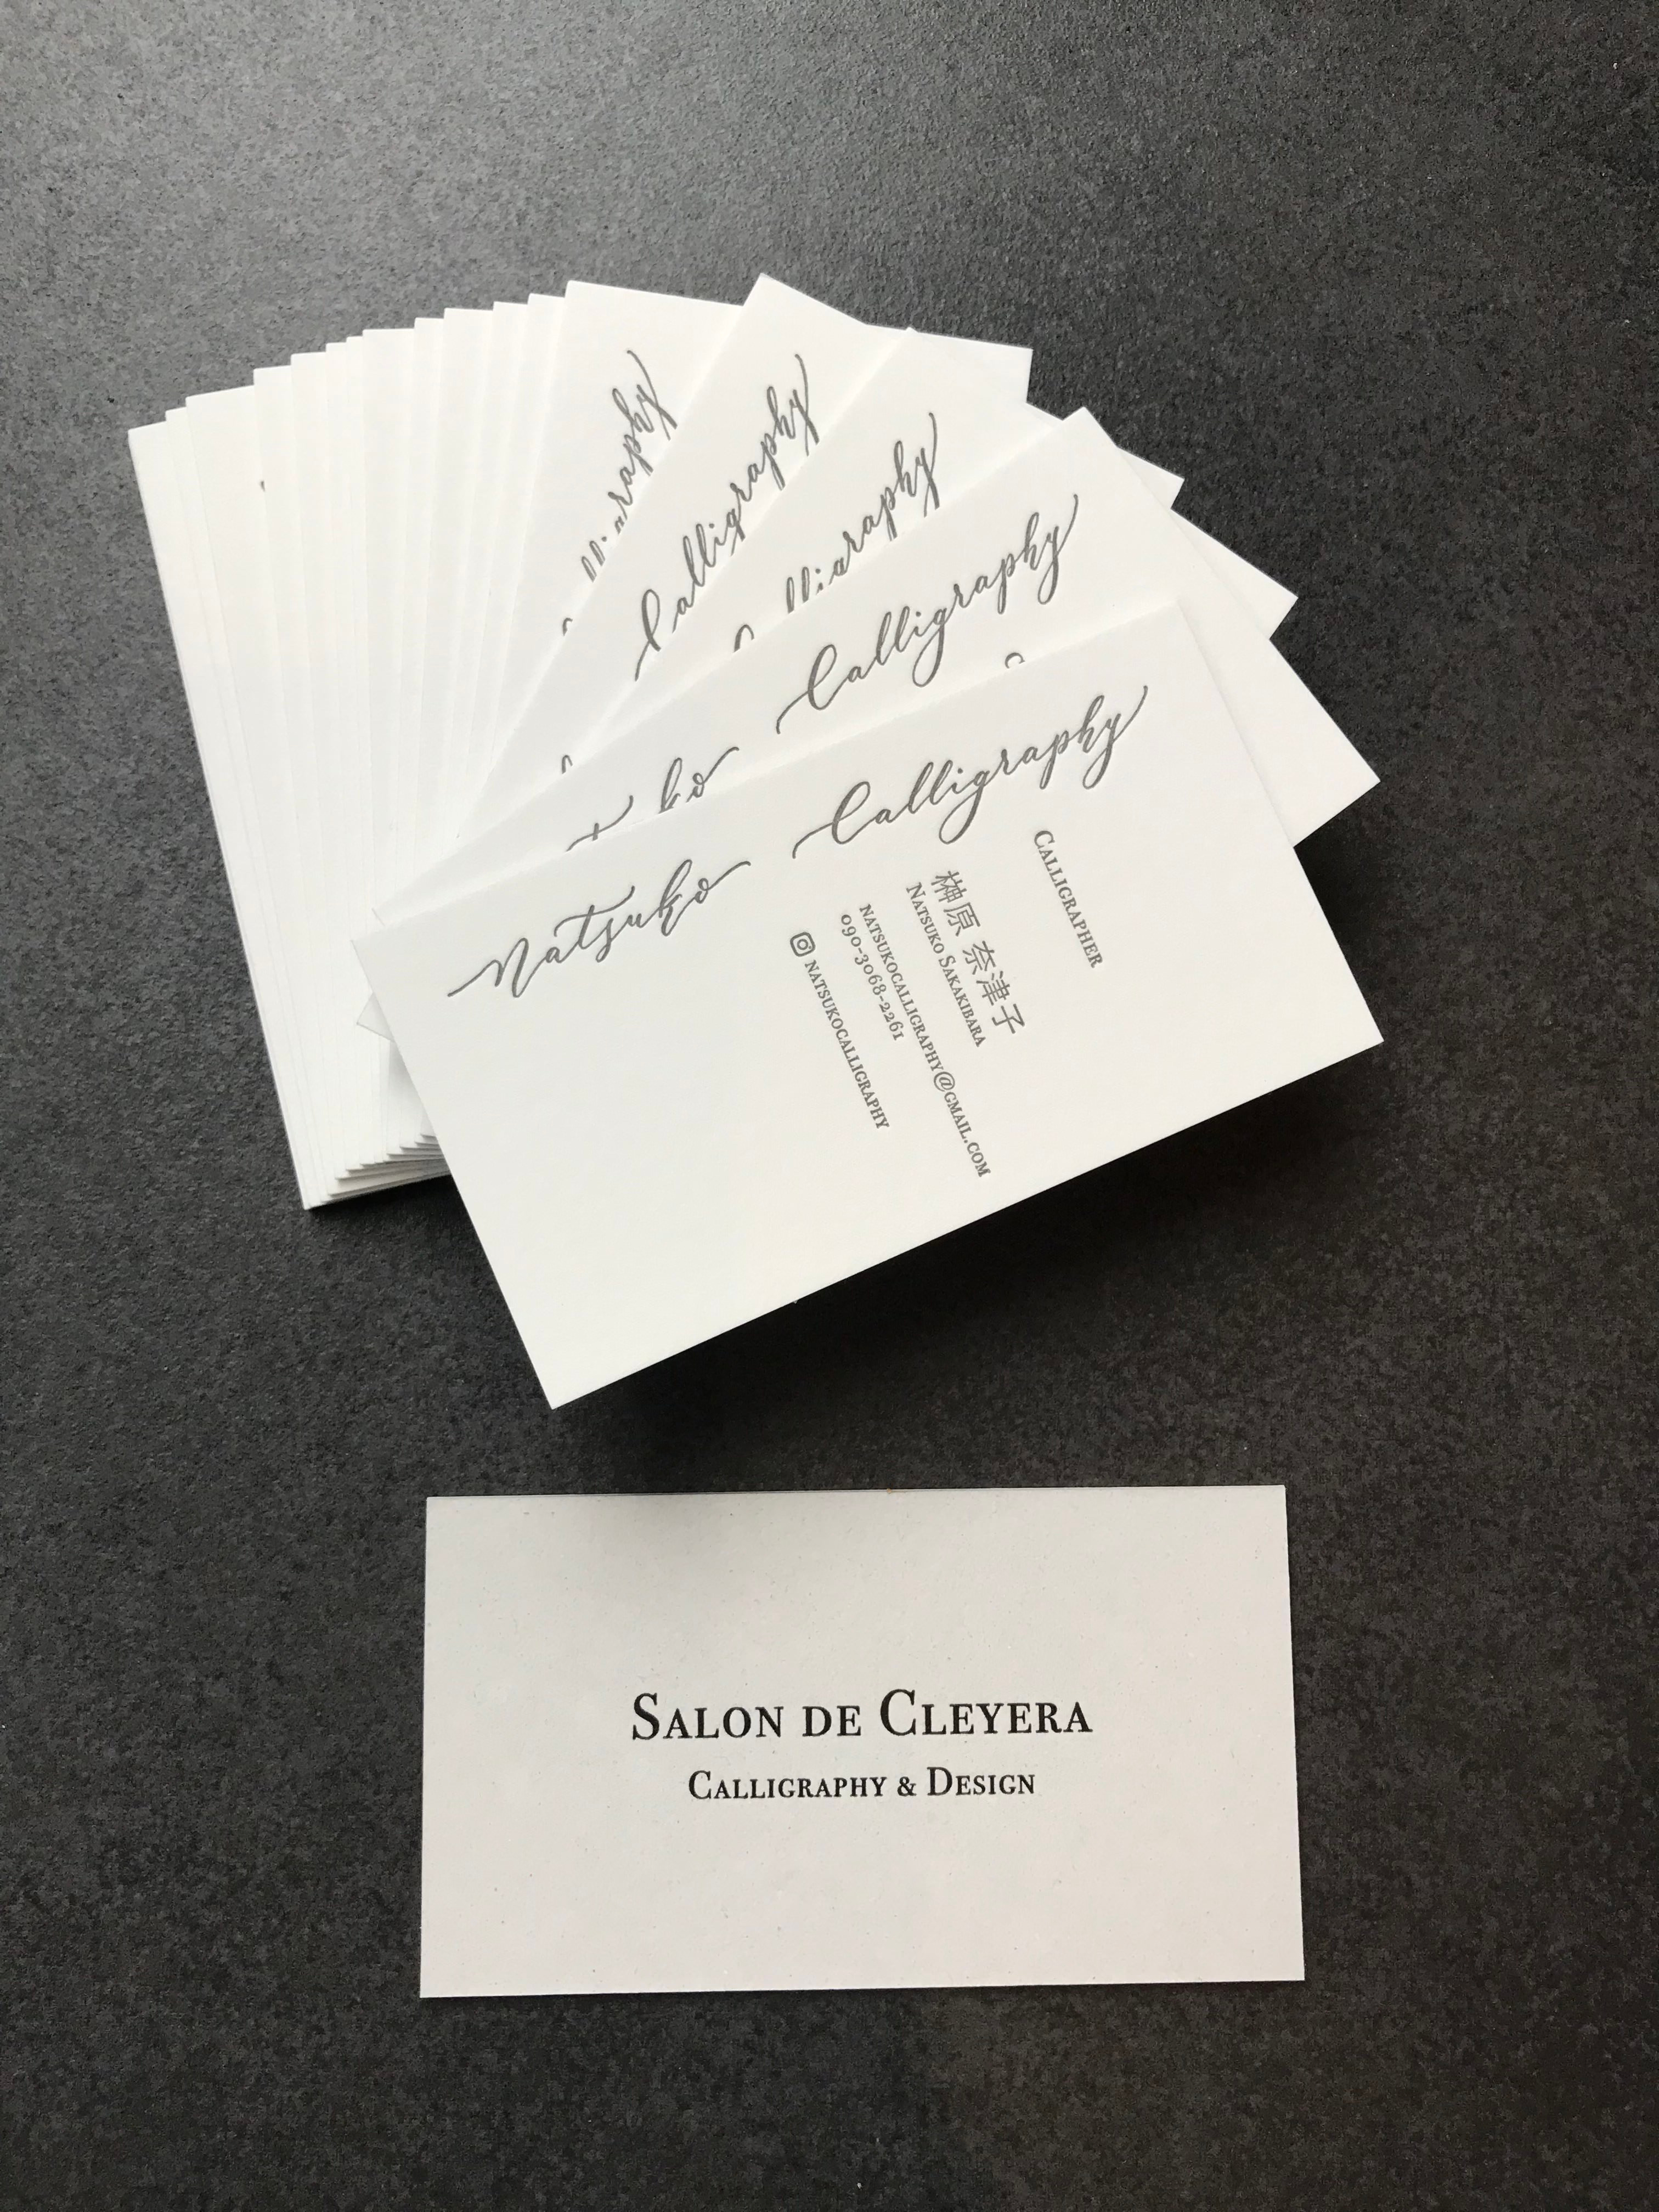 Calligraphy
Calligraphy
Natsuko Calligraphy
CALLIGRAPHER
榊原 奈津子
NATSUKO SAKAKIBARA
NATSUKOCALLIGRAPHY@GMAIL.COM
090-3068-2261
NATSUKOCALLIGRAPHY
SALON DE CLEYERA
CALLIGRAPHY & DESIGN